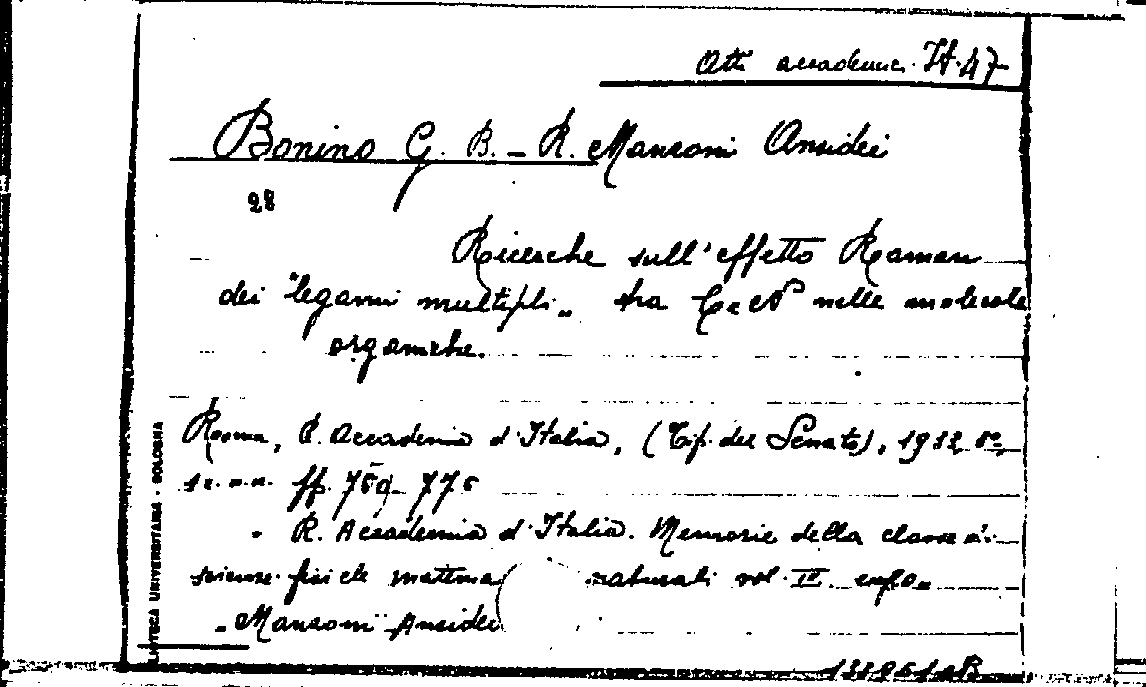 Atti accademie It. 47
Bonino G. B. - R. Manzoni Ansidei
28
Ricerche sull'effetto Raman
dei "legami multipli" tra C e N nelle molecole
organiche.
Roma, R. Accademia d'Italia, (Tip. del Senato), 1932, 8º,
pp. 759-775
R. Accademia d'Italia. Memorie della classe di
scienze fisiche matema naturali vol. III
- Manzoni Ansidei
BIBLIOTECA UNIVERSITARIA - BOLOGNA